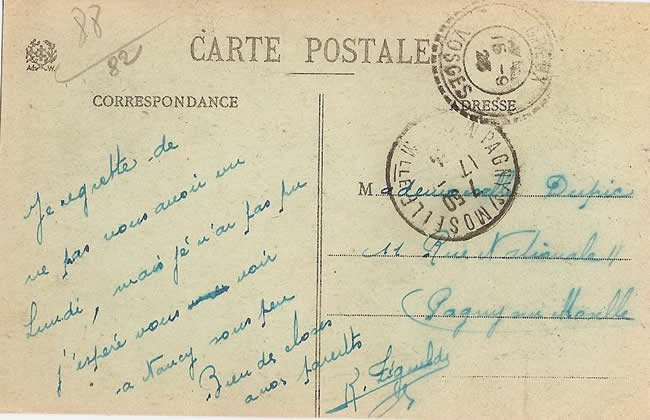 88
82
CARTE POSTALE
CORRESPONDANCE
ADRESSE
VOSGES
15 - 9
PAGNY S/ MOSELLE
17
7 30
Je regrette de
ne pas vous avoir vu
Lundi, mais je n'ai pas pu
j'espère vous voir
a Nancy sous peu
Bien des choses
a vos parents
Mademoiselle Dupic
11 Rue Nationale 11
Pagny sur Moselle